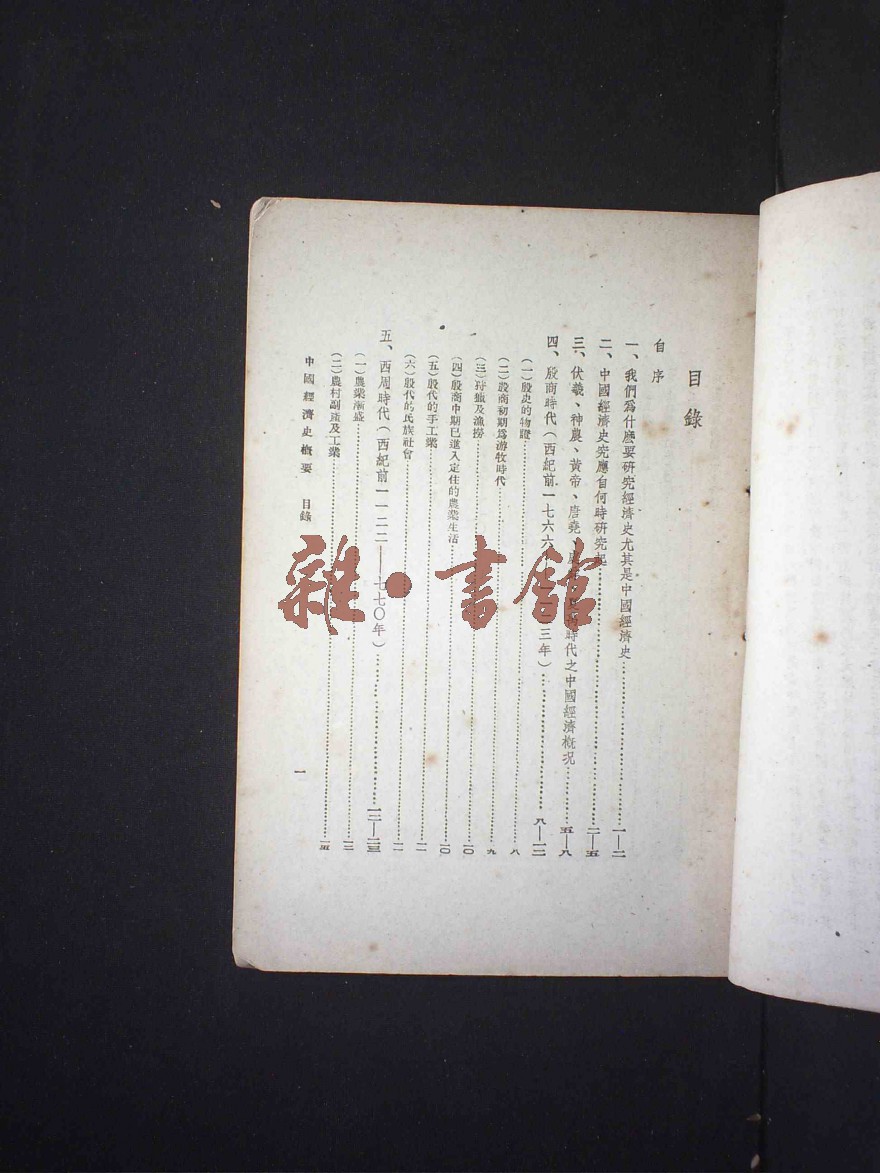 目錄
自序
一、我們爲什麽要研究經濟史尤其是中國經濟史……一—二
二、中國經濟史究應自何時研究起……二—五
三、伏羲、神農、黃帝、唐堯、時代之中國經濟概况……五—八
四、殷商時代(西紀前一七六六三年)……八—一二
(一)殷史的物證……八
(二)殷商初期爲游牧時代……九
(三)狩獵及漁撈……一〇
(四)殷商中期已進入定住的農業生活……一〇
(五)殷代的手工業……一一
(六)殷代的氏族社會……一一
五、西周時代(西紀前一一二二——七七〇年)……一二—二三
(一)農業漸盛……一二
(二)農村副產及工業……一五
中國經濟史概要 目錄
一
雜·書館